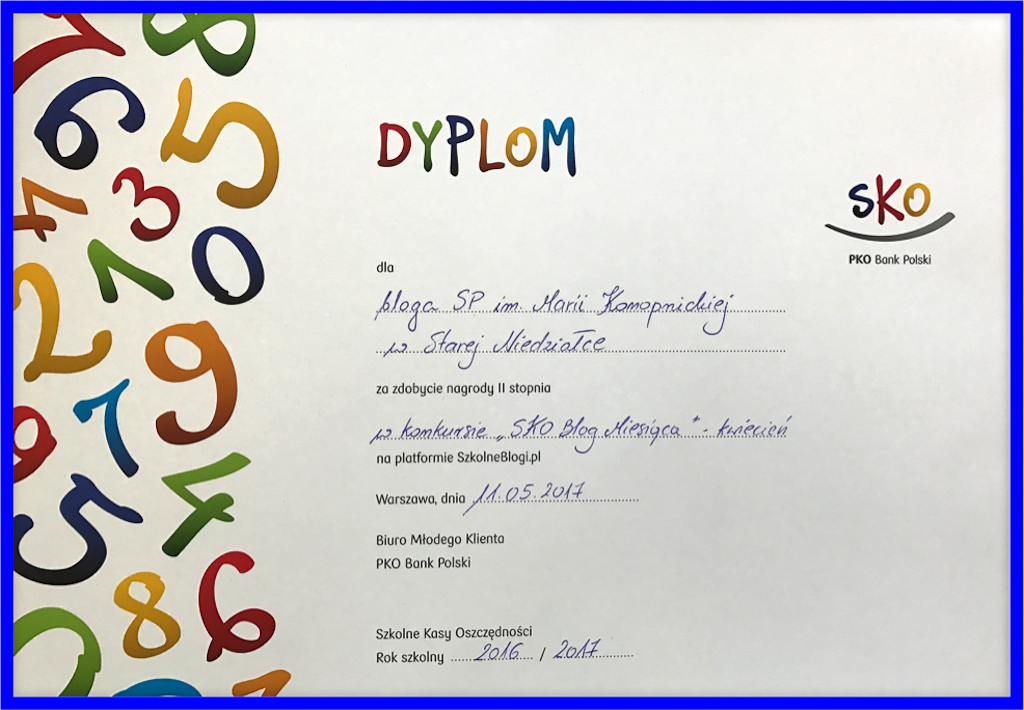 DYPLOM
SKO
PKO Bank Polski
dla
bloga SP im. Marii Konopnickiej
w Starej Niedziałce
za zdobycie nagrody II stopnia
w konkursie „SKO Blog Miesiąca" - kwiecień
na platformie SzkolneBlogi.pl
Warszawa, dnia 11.05.2017
Biuro Młodego Klienta
PKO Bank Polski
Szkolne Kasy Oszczędności
Rok szkolny 2016 / 2017